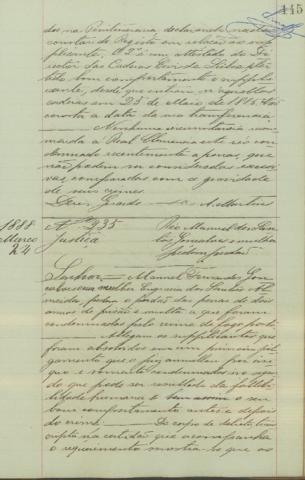 445
dos na Penitenciaria, declarando nada
constar do Registo em relação ao sup-
plicante. O 2º é um attestado do Di-
rector das Cadeias Civis de Lisboa
bom comportamento o suppli-
cante, desde que entrou n'aquellas
cadeias em 23 de Maio de 1885 até
a data da sua transferencia.
Nenhuma circumstancia recom-
menda á Real Clemencia este réo con-
demnado recentemente a penas que
não podem ser consideradas exces-
sivas comparadas com a gravidade
de seus crimes.
Deus Guarde A. Martins
1888
Março
24
Nº 235
Justiça
Réo Manuel
Gonçalves e mulher
pedem perdão
Senhor Manuel Fernandes Gon-
e sua mulher Engracia dos Santos
pedem o perdão das penas de dois
annos de prisão e multa a que foram
condemnados pelo crime de fogo posto.
Allegam os supplicantes que
foram absolvidos em um primeiro jul-
gamento que o juiz annullou por ini-
quo e somente condemnados no segun-
do que pode ser resultado da fallibi-
lidade humana e bem assim o seu
bom comportamento antes e depois
do crime. Do corpo de delicto, trans-
cripto na certidão que acompanha
o requerimento mostra-se que os